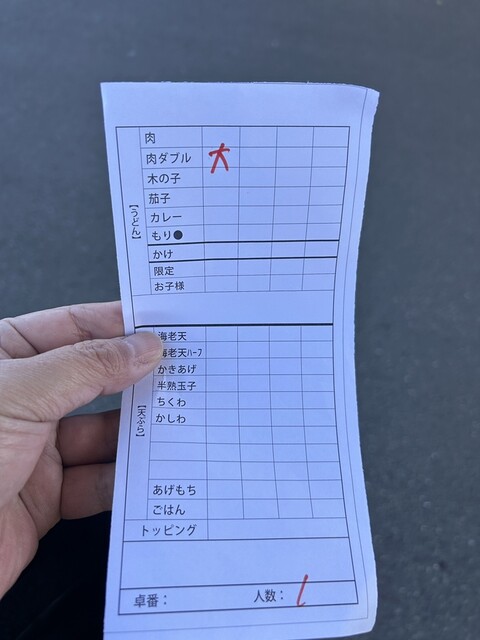 【うどん】
肉
肉ダブル 大
木の子
茄子
カレー
もり●
かけ
限定
お子様
【天ぷら】
海老天
海老天ﾊｰﾌ
かきあげ
半熟玉子
ちくわ
かしわ
あげもち
ごはん
トッピング
卓番： 人数：1